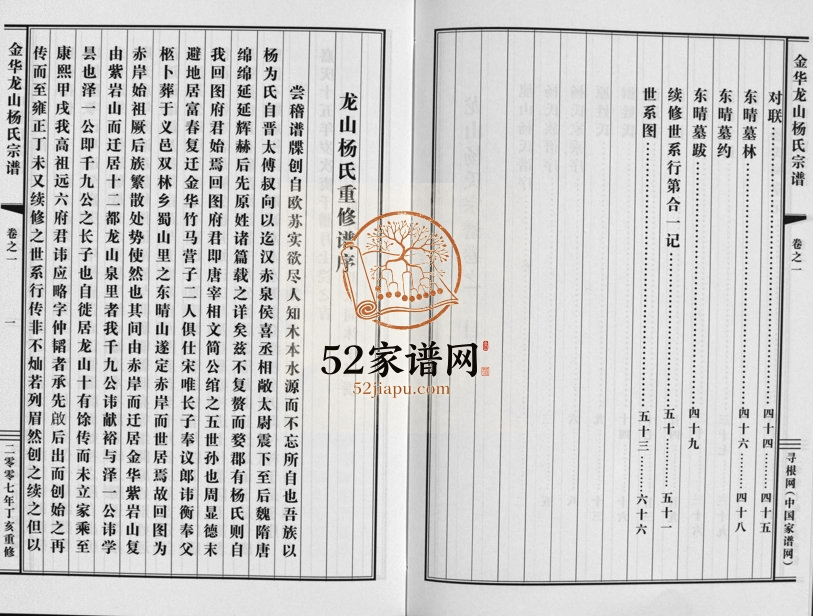 金华龙山杨氏宗谱
卷之一
寻根网（中国家谱网）
对联……四十四……四十五
东晴墓林……四十六……四十八
东晴墓约
东晴墓跋……四十九
续修世系行第合一记……五十……五十一
世系图……五十三……六十六
龙山杨氏重修谱序
尝稽谱牒创自欧苏实欲尽人知木本水源而不忘所自也吾族以
杨为氏自晋太傅叔向以迄汉赤泉侯喜丞相敞太尉震下至后魏隋唐
绵绵延延辉赫后先原姓诸篇载之详矣兹不复赘而婺郡有杨氏则自
我回图府君始焉回图府君即唐宰相文简公绾之五世孙也周显德末
避地居富春复迁金华竹马营子二人俱仕宋唯长子奉议郎讳衡奉父
柩卜葬于义邑双林乡蜀山里之东晴山遂定赤岸而世居焉故回图为
赤岸始祖厥后族繁散处势使然也其间由赤岸而迁居金华紫岩山复
由紫岩山而迁居十二都龙山泉里者我千九公讳献裕与泽一公讳学
昙也泽一公即千九公之长子也自徙居龙山十有馀传而未立家乘至
康熙甲戌我高祖远六府君讳应略字仲韬者承先啟后出而创始之再
传而至雍正丁未又续修之世系行传非不灿若列眉然创之续之但以
金华龙山杨氏宗谱
卷之一
一
二零零七年丁亥重修
52家谱网
52jiapu.com